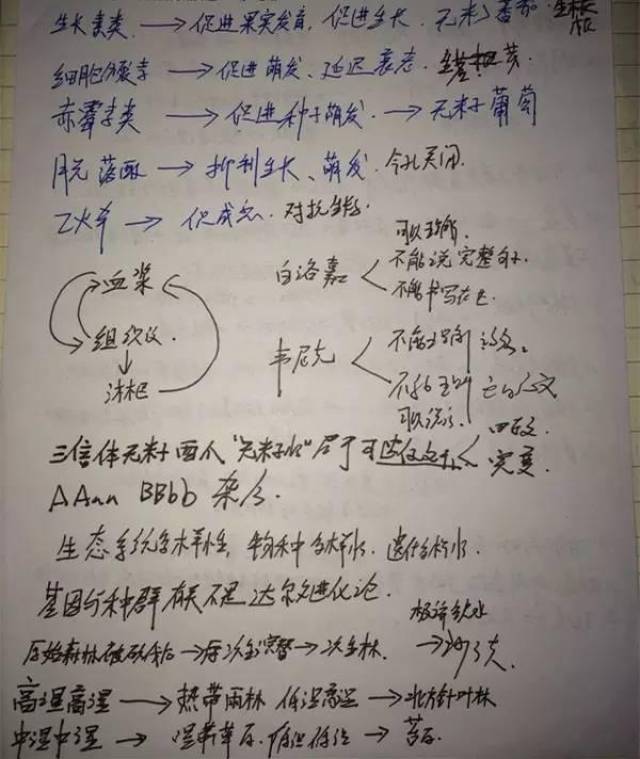 生长素类 → 促进果实发育, 促进生长. 无籽番茄. 生根
细胞分裂素 → 促进萌发、延迟衰老.
赤霉素类 → 促进种子萌发. → 无籽葡萄
脱落酸 → 抑制生长、萌发. 气孔关闭.
乙烯 → 促成熟. 对抗生长.
血浆
组织液.
淋巴
白洛嘉
可以理解.
不能说完整句子.
不能书写
韦尼克
不能理解
不能理解
可以说话.
三倍体无籽西瓜 "无籽" 属于可遗传变异
AAaa BBbb 杂合.
生态系统多样性, 物种多样性. 遗传多样性.
基因与种群有关不是达尔文进化论.
原始森林被砍伐后 → 次生演替 → 次生林. →
高温高湿 → 热带雨林 低温高湿 → 北方针叶林
中湿中温 → 温带草原. 低温低湿 → 苔原.